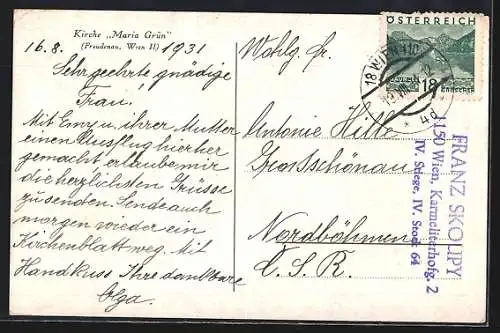 Kirche „Maria Grün"
(Freudenau, Wien II)
16.8. 1931
Sehr geehrte gnädige
Frau!
Mit Emzu u. ihrer Mutter
einen Ausflug hierher
gemacht erlaube mir
die herzlichsten Grüsse
zu senden. Sende auch
morgen wieder ein
Kirchenblatt weg. Mit
Handkuss Ihre dankbare
Olga.
Wohlg. Fr.
Antonie Hille
Grossschönau
Nordböhmen
C.S.R.
ÖSTERREICH
18
GROSCHEN
18 WIEN 110
FRANZ SKOLIPY
1150 Wien, Karmeliterhofg. 2
IV. Stiege, IV. Stock 64